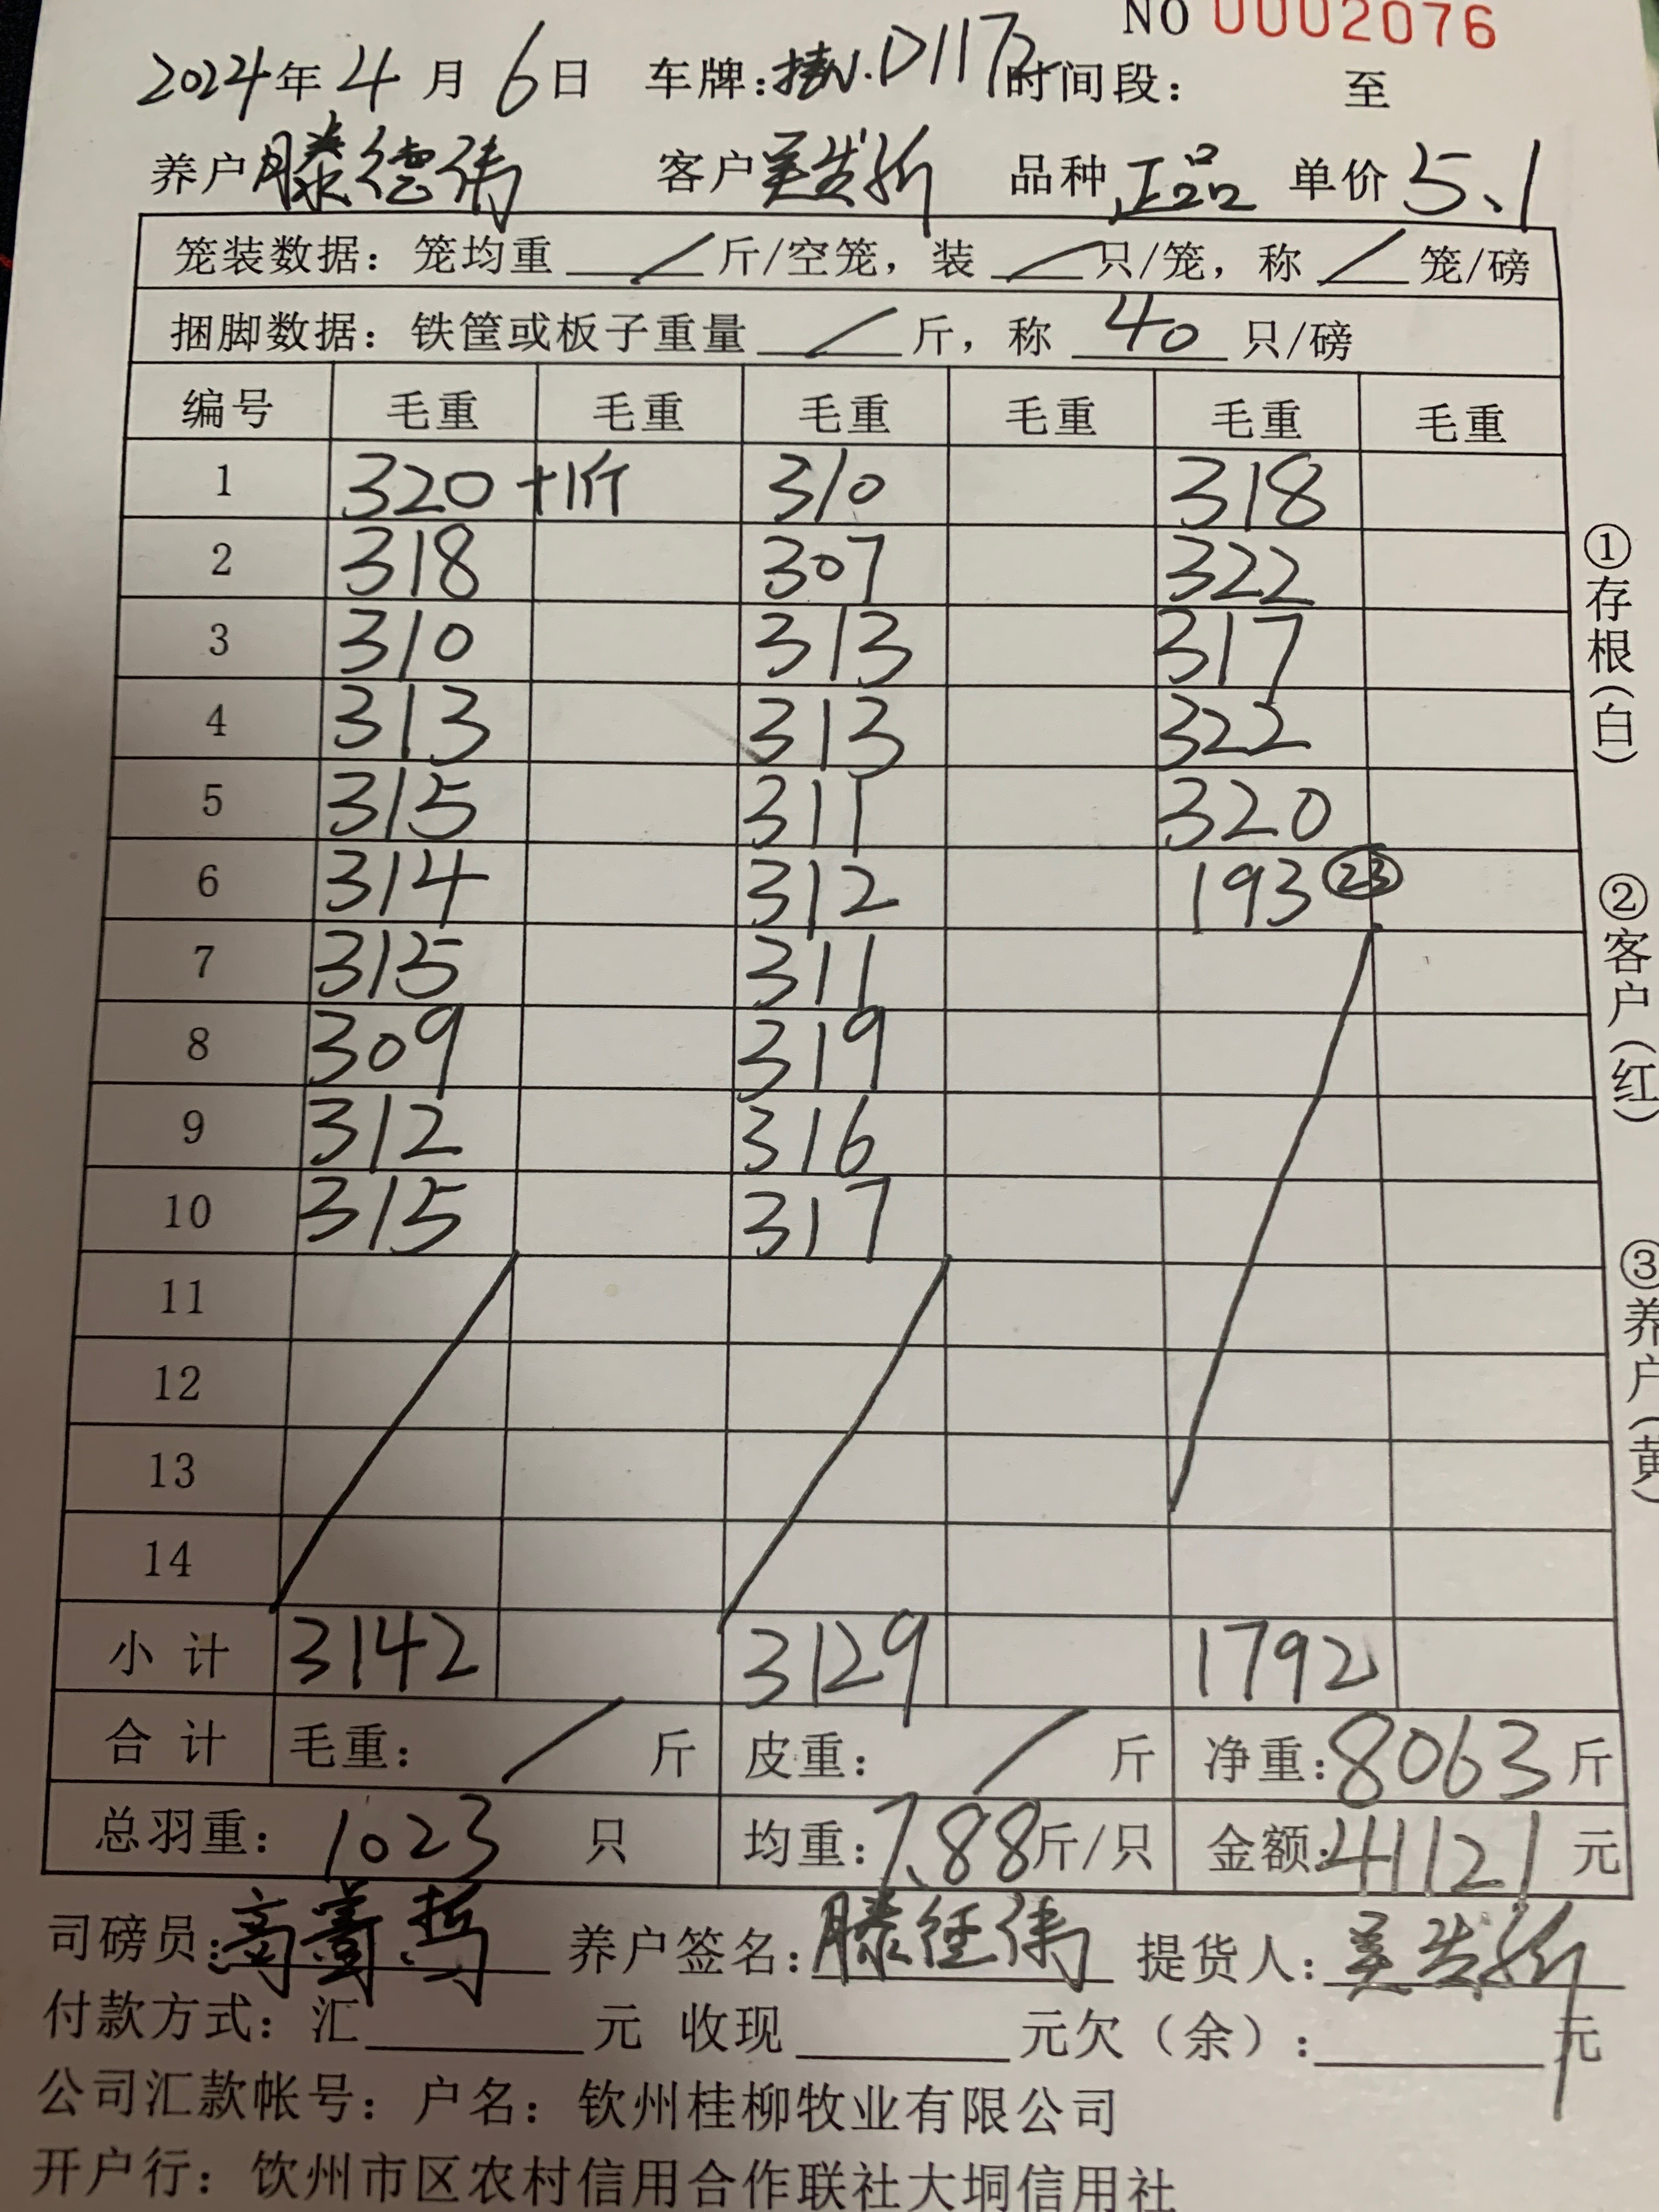 NO 0002076
2024年4月6日 车牌: D1172 时间段: 至
养户 滕德伟 客户 吴发新 品种 正品 单价 5.1
笼装数据: 笼均重 / 斤/空笼, 装 / 只/笼, 称 / 笼/磅
捆脚数据: 铁筐或板子重量 / 斤, 称 40 只/磅
编号 毛重 毛重 毛重 毛重 毛重 毛重
1 320 +1斤 310 318
2 318 307 322
3 310 313 317
4 313 313 322
5 315 311 320
6 314 312 193 ㉓
7 315 311
8 309 319
9 312 316
10 315 317
11
12
13
14
小计 3142 3129 1792
合计 毛重: / 斤 皮重: / 斤 净重: 8063 斤
总羽重: 1023 只 均重: 7.88 斤/只 金额: 41121 元
司磅员: 养户签名: 滕德伟 提货人: 吴发新
付款方式: 汇 元 收现 元欠(余): 元
公司汇款帐号: 户名: 钦州桂柳牧业有限公司
开户行: 钦州市区农村信用合作联社大垌信用社
①存根(白)
②客户(红)
③养户(黄)